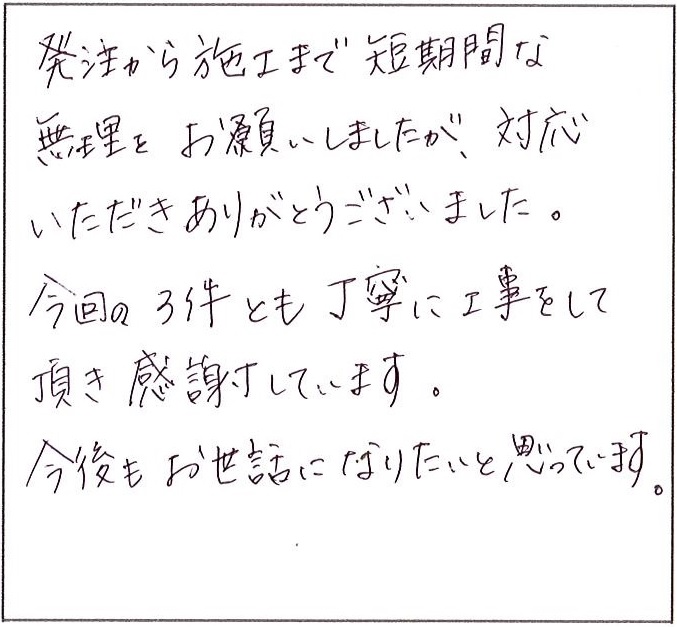 発注から施工まで短期間な
無理を お願いしましたが、対応
いただきありがとうございました。
今回の3件とも丁寧に工事をして
頂き感謝しています。
今後もお世話になりたいと思っています。